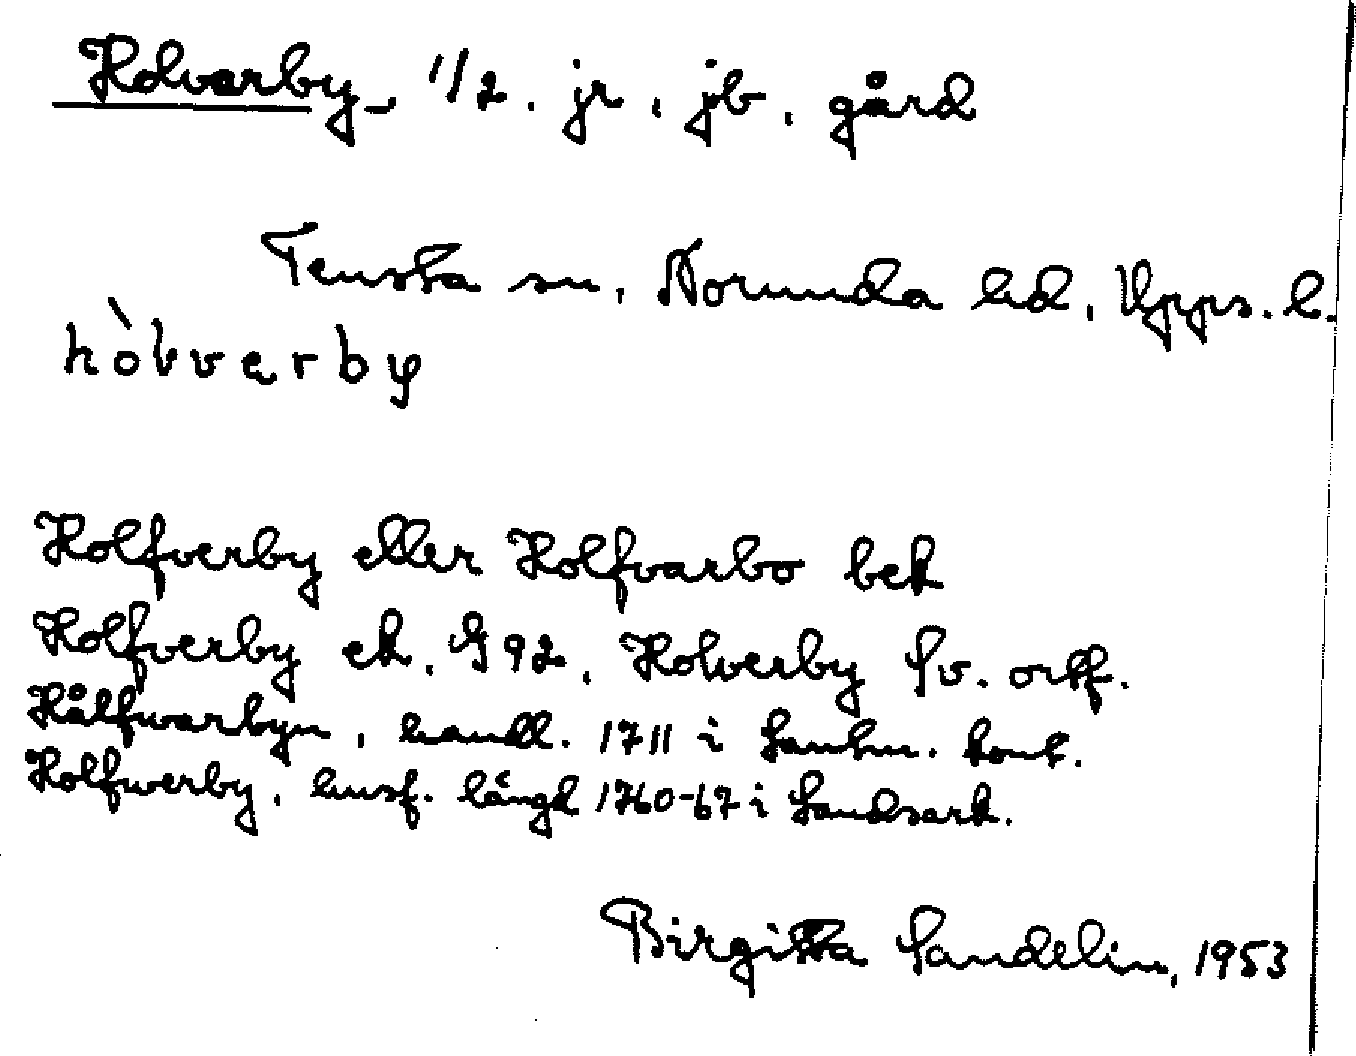 Holvarby, 1/2. jr, jb, gård
Tensta sn, Norunda hd, Upps. l.
hòlvarby
Holfverby eller Holfvarbo bek
Holfverby ek. G 92, Holverby Sv. ortf.
Hålfwarbyn, handl. 1711 i Lantm. kont.
Holfwerby, husf. längd 1760-67 i Landsark.
Birgitta Sandelin, 1953